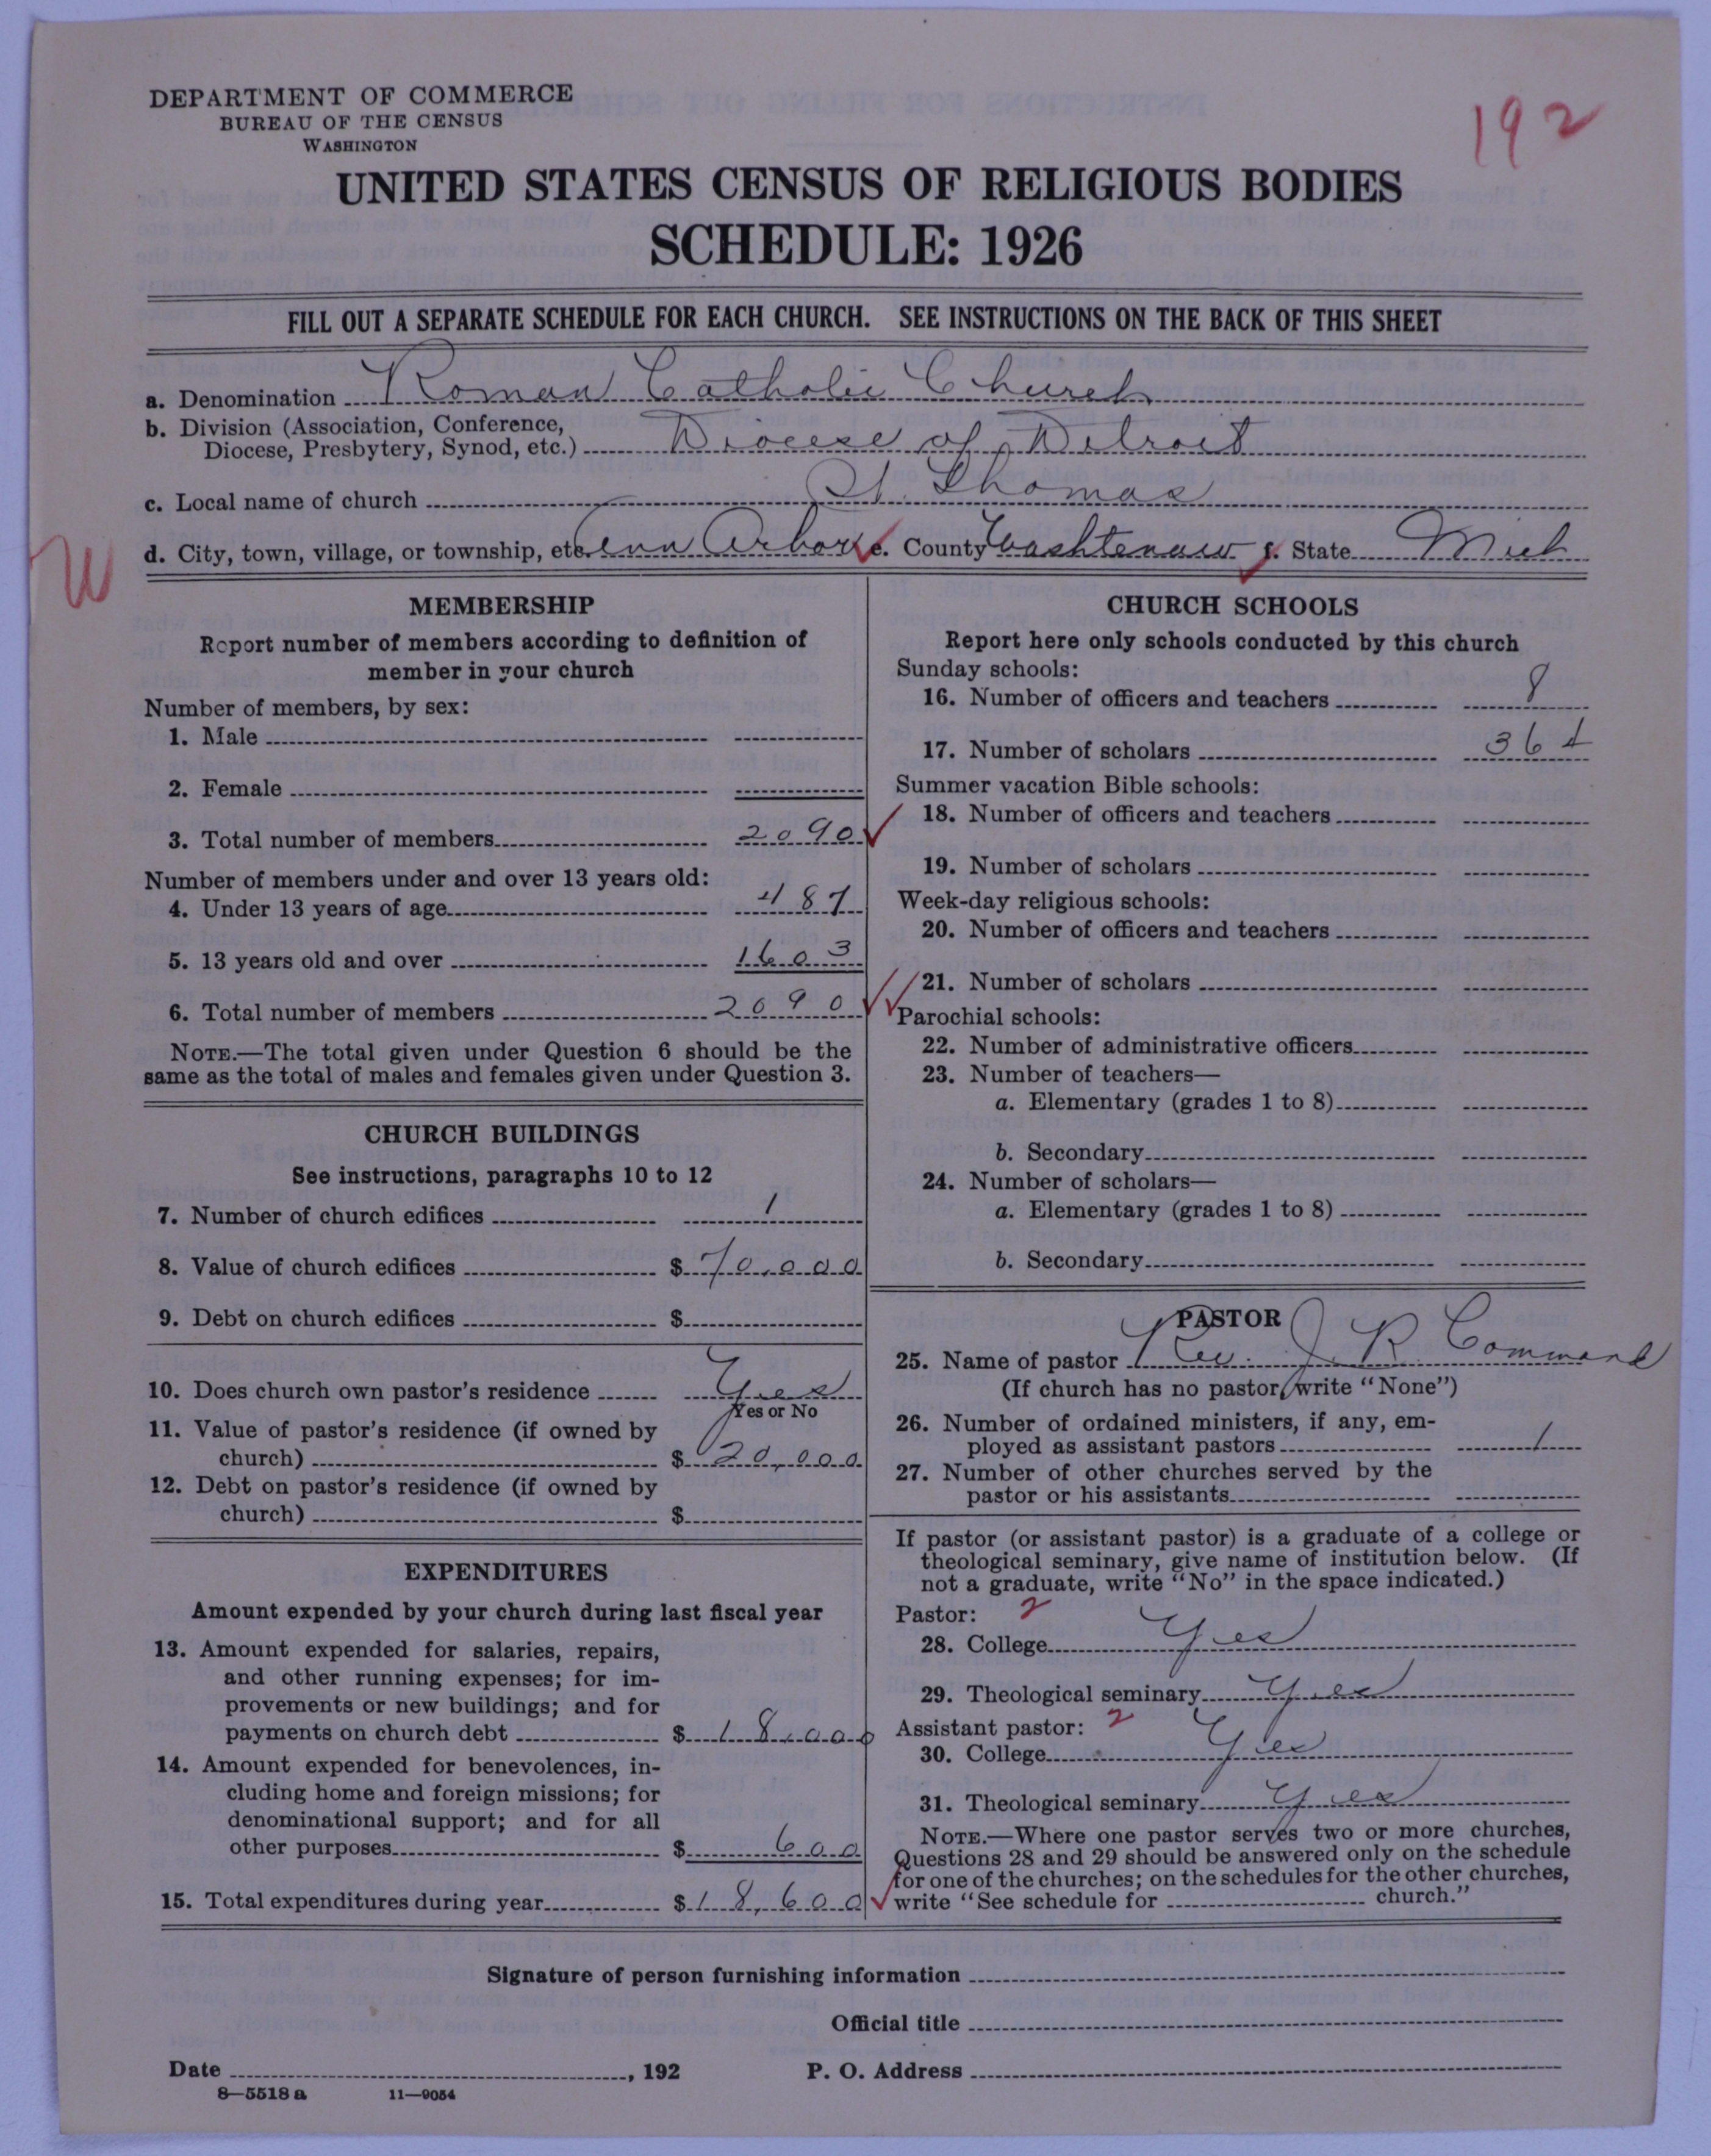 DEPARTMENT OF COMMERCE
BUREAU OF THE CENSUS
WASHINGTON
192
UNITED STATES CENSUS OF RELIGIOUS BODIES
SCHEDULE: 1926
FILL OUT A SEPARATE SCHEDULE FOR EACH CHURCH. SEE INSTRUCTIONS ON THE BACK OF THIS SHEET
a. Denomination Roman Catholic Church
b. Division (Association, Conference,
Diocese, Presbytery, Synod, etc.) Diocese of Detroit
c. Local name of church St. Thomas
d. City, town, village, or township, etc. Ann Arbor e. County Washtenaw f. State Mich
W
MEMBERSHIP
Report number of members according to definition of
member in your church
Number of members, by sex:
1. Male
2. Female
3. Total number of members 2090
Number of members under and over 13 years old:
4. Under 13 years of age 487
5. 13 years old and over 1603
6. Total number of members 2090
NOTE.—The total given under Question 6 should be the
same as the total of males and females given under Question 3.
CHURCH BUILDINGS
See instructions, paragraphs 10 to 12
7. Number of church edifices 1
8. Value of church edifices $ 70,000
9. Debt on church edifices $
10. Does church own pastor's residence Yes
Yes or No
11. Value of pastor's residence (if owned by
church) $ 20,000
12. Debt on pastor's residence (if owned by
church) $
EXPENDITURES
Amount expended by your church during last fiscal year
13. Amount expended for salaries, repairs,
and other running expenses; for im-
provements or new buildings; and for
payments on church debt $ 18,000
14. Amount expended for benevolences, in-
cluding home and foreign missions; for
denominational support; and for all
other purposes $ 600
15. Total expenditures during year $ 18,600
CHURCH SCHOOLS
Report here only schools conducted by this church
Sunday schools:
16. Number of officers and teachers 8
17. Number of scholars 364
Summer vacation Bible schools:
18. Number of officers and teachers
19. Number of scholars
Week-day religious schools:
20. Number of officers and teachers
21. Number of scholars
Parochial schools:
22. Number of administrative officers
23. Number of teachers—
a. Elementary (grades 1 to 8)
b. Secondary
24. Number of scholars—
a. Elementary (grades 1 to 8)
b. Secondary
PASTOR
25. Name of pastor Rev. J. R. Command
(If church has no pastor, write "None")
26. Number of ordained ministers, if any, em-
ployed as assistant pastors 1
27. Number of other churches served by the
pastor or his assistants
If pastor (or assistant pastor) is a graduate of a college or
theological seminary, give name of institution below. (If
not a graduate, write "No" in the space indicated.)
Pastor: 2
28. College Yes
29. Theological seminary Yes
Assistant pastor: 2
30. College Yes
31. Theological seminary Yes
NOTE.—Where one pastor serves two or more churches,
Questions 28 and 29 should be answered only on the schedule
for one of the churches; on the schedules for the other churches,
write "See schedule for church."
Signature of person furnishing information
Official title
Date , 192 P. O. Address
8—5518 a 11—9054